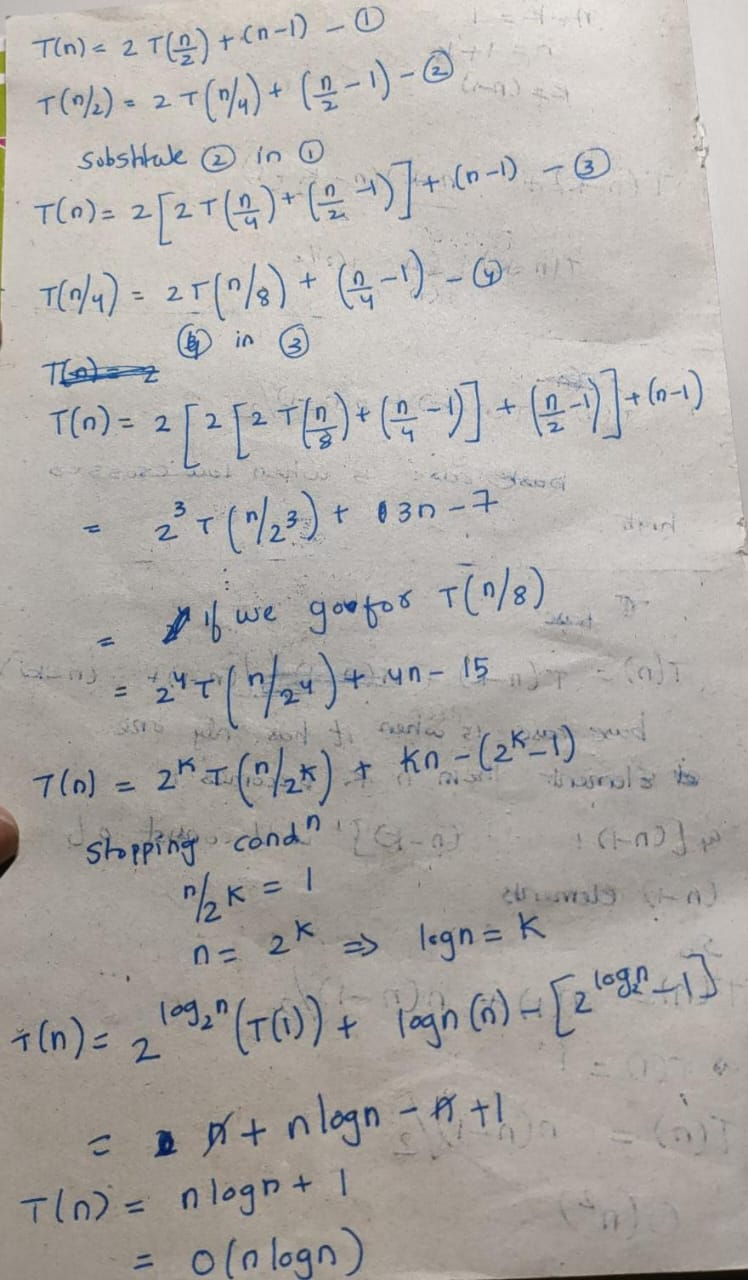 T(n) = 2 T(n/2) + (n-1) - ①
T(n/2) = 2 T(n/4) + (n/2 - 1) - ②
Substitute ② in ①
T(n) = 2 [2 T(n/4) + (n/2 - 1)] + (n-1) - ③
T(n/4) = 2T(n/8) + (n/4 - 1) - ④
④ in ③
T(n) = 2
T(n) = 2 [2 [2 T(n/8) + (n/4 - 1)] + (n/2 - 1)] + (n-1)
= 2³ T(n/2³) + 3n - 7
= if we go for T(n/8)
= 2⁴ T(n/2⁴) + 4n - 15
T(n) = 2^K T(n/2^K) + Kn - (2^K - 1)
Stopping condⁿ
n/2^K = 1
n = 2^K ⇒ logn = K
T(n) = 2^log₂n (T(1)) + logn (n) - [2^log₂n - 1]
= n + nlogn - n + 1
T(n) = nlogn + 1
= O(nlogn)